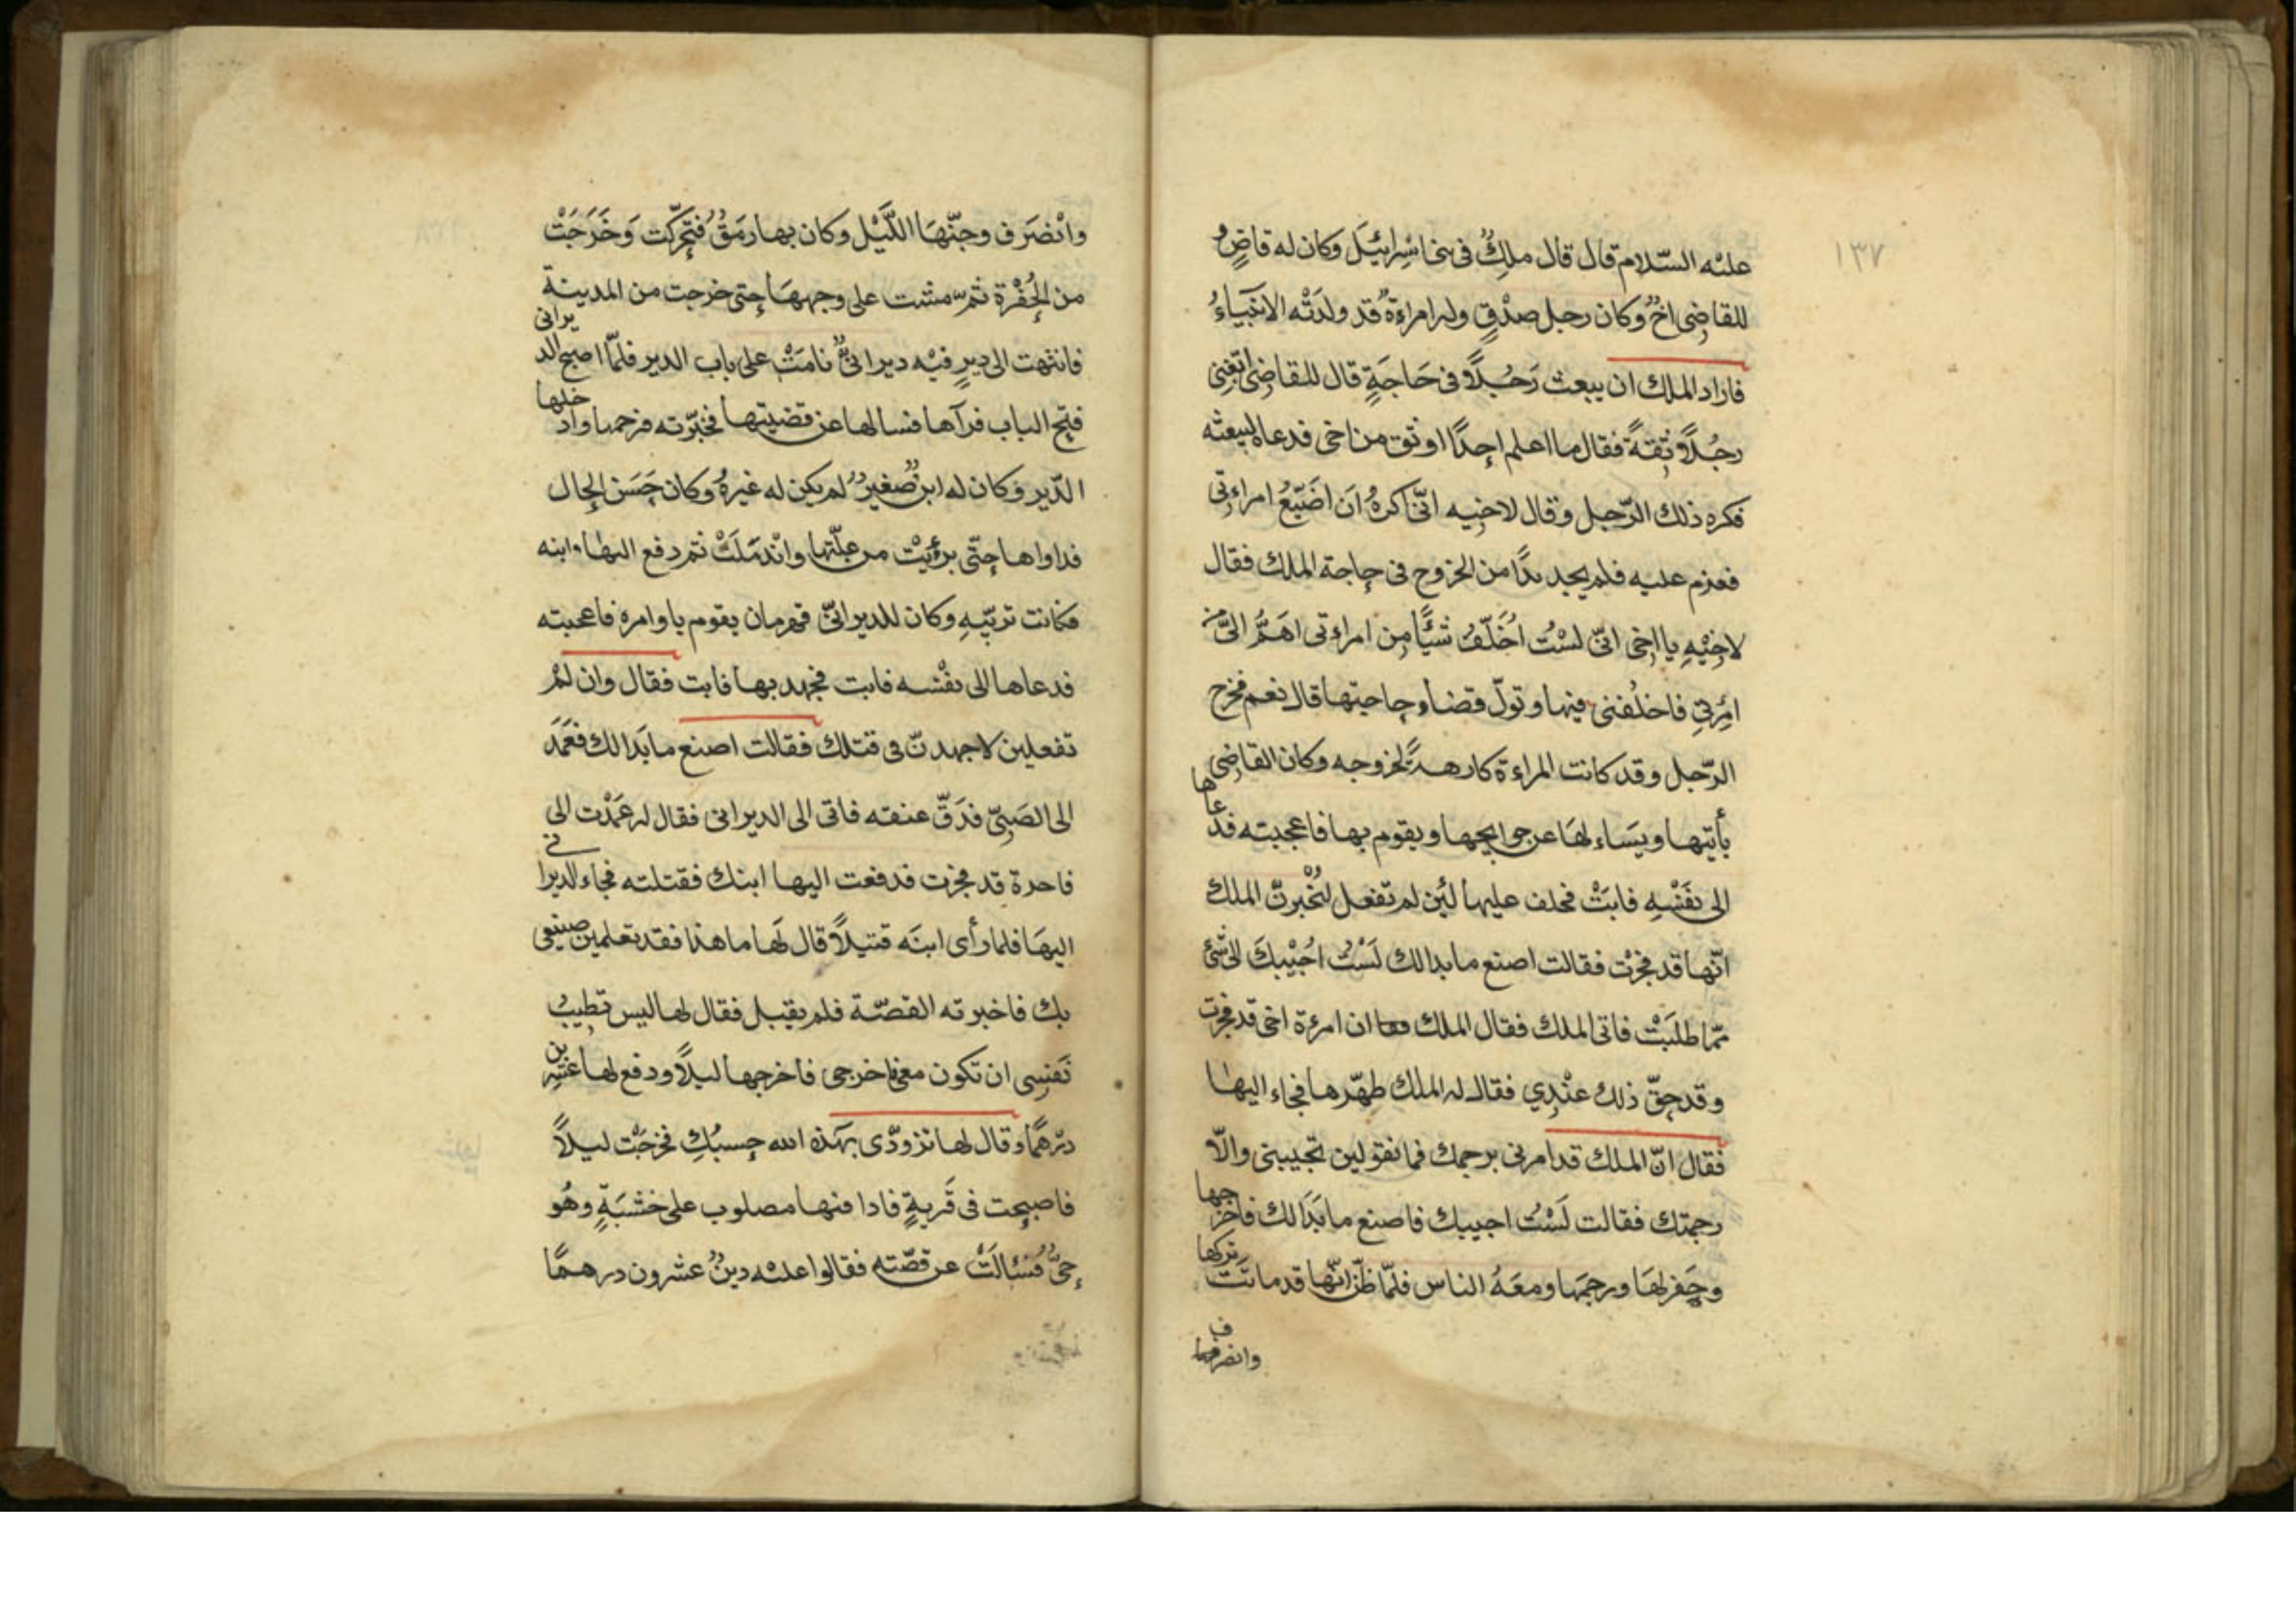 ١٣٧
عليه السّلام قال قال ملكٌ فى بنى اسْرائيل وكان له قاضٍ و
للقاضِى اخٌ وكان رجل صدْقٍ وله امراءةٌ قد ولدَتْه الانبياءُ
فاراد الملك ان يبعث رَجُلاً فى حَاجَةٍ قال للقاضِى اتغِنِى
رجُلاً ثقةً فقال ما اعلم احدًا اوثق من اخى فدعاه ليبعثه
فكره ذلك الرّجل وقال لاخيه انّى اكرهُ انَ اضَيّعُ امراءتى
فعزم عليه فلم يجد بدًّا من الخروج فى حاجة الملك فقال
لاخِيْهِ يا اخى انّى لسْتُ اخَلّفُ شيْئًا مِن امراءتى اهَمُّ الىَّ من
امْرِتى فاخلُفنى فيها وتولّ قضاء حاجتها قال نعم فخرج
الرّجل وقد كانت المراءة كارهةً لخروجه وكان القاضِى
يأتيها ويَساءلهَا عن حوايجها ويقوم بها فاعجبته فدعاها
الى نفَسْهِ فابَتْ فحلف عليها لئِن لم تفعل لنُخْبرنّ الملك
انّها قد فجرْت فقالت اصنع ما بدالك لَسْتُ اجُيْبكَ الى شئ
ممّا طلَبَتْ فاتى الملك فقال الملك ان امرءة اخى قد فجرت
وقد حقّ ذلك عنْدِي فقال له الملك طهّرها فجاء اليها
فقال انّ الملك قد امرنى برجمك فما تقولين تجيبينى والّا
رجمتك فقالت لَسْتُ اجيبك فاصنع ما بَدَالك فاخرجها
وحفر لهَا ورجمهَا ومعَهُ الناس فلمّا ظنّ انّها قد ماتَتَ تركها
وانصرف
وانْصَرَف وجنّهَا اللَّيْل وكان بها رمَقٌ فتحرّكت وَخَرَجَتْ
من الحُفْرة ثمّ مشت على وجهِهَا حتى خرجت من المدينة
فانتهت الى ديرٍ فيْه ديرانىٌّ نامَتْ على باب الدير فلمّا اصبح الديرانى
فتح الباب فرآها فسالها عن قضيتها فخبّرته فرحمها وادخلها
الدّير وكان له ابنٌ صغيرٌ لم يكن له غيرهُ وكان حَسَن الحال
فداواها حتّى برئَتْ من علّتها وانْدمَلَتْ ثم دفع اليها ابنه
فكانت تربّيهِ وكان للديرانىّ قهرمان يقوم باوامره فاعجبته
فدعاها الى نفْسه فابت فجهد بها فابت فقال وان لمْ
تفعلين لاجهدنّ فى قتلك فقالت اصنع ما بَدَالك فعَمَدَ
الى الصَبىّ فدَقّ عنقه فاتى الى الديرانى فقال له عَمَدْت الى
فاجرة قد فجرت فدفعت اليها ابنك فقتلته فجاء الديرانى
اليهَا فلما رأى ابنَه قتيلاً قال لَها ما هذا فقد تعلمين صنيعى
بك فاخبرته القصّة فلم يقبل فقال لها ليس تطيبُ
نَفسِى ان تكون معى فاخرجى فاخرجها ليلاً ودفع لها عشرين
درْهمًا وقال لها تزوّدى بهَذه الله حسبُكِ فخرجَتْ ليلاً
فاصبحت فى قَريةٍ فاذا فيها مصلوب على خشَبَةٍ وهُو
حىٌّ فسْئالَتْ عن قصّته فقالوا عليْه دينٌ عشرون درهمًا